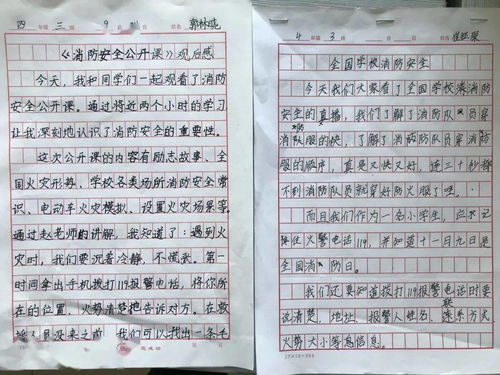 四 年级 三 9
《消防安全公开课》观后感
今天，我和同学们一起观看了消防
安全公开课。通过将近两个小时的学习，
让我深刻地认识了消防安全的重要性。
这次公开课的内容有励志故事、全
国火灾形势、学校各类场所消防安全常
识、电动车火灾模拟、设置火灾场景等。
通过赵老师的讲解，我知道了：遇到火
灾时，我们要沉着冷静，不慌张。第一
时间拿出手机拨打119报警电话，将你所
在的位置、火势清楚地告诉对方。在救
人员没来之前，我们可以找出一条毛
4 年级 3
全国学校消防安全
今天我们大家看了全国学校消防
安全的直播，我们了解了消防队员穿
消防服的快，了解了消防队员穿消防
服的顺序，真是又快又好，连三十秒都
不到消防队员就穿好防火服了哩。
而且我们作为一名小学生，应牢记
住火警电话119，并知道十一月九日是
全国消防日。
我们还要知道拨打119报警电话时要
说清楚，地址、报警人姓名、联系方式
火势大小等高信息。